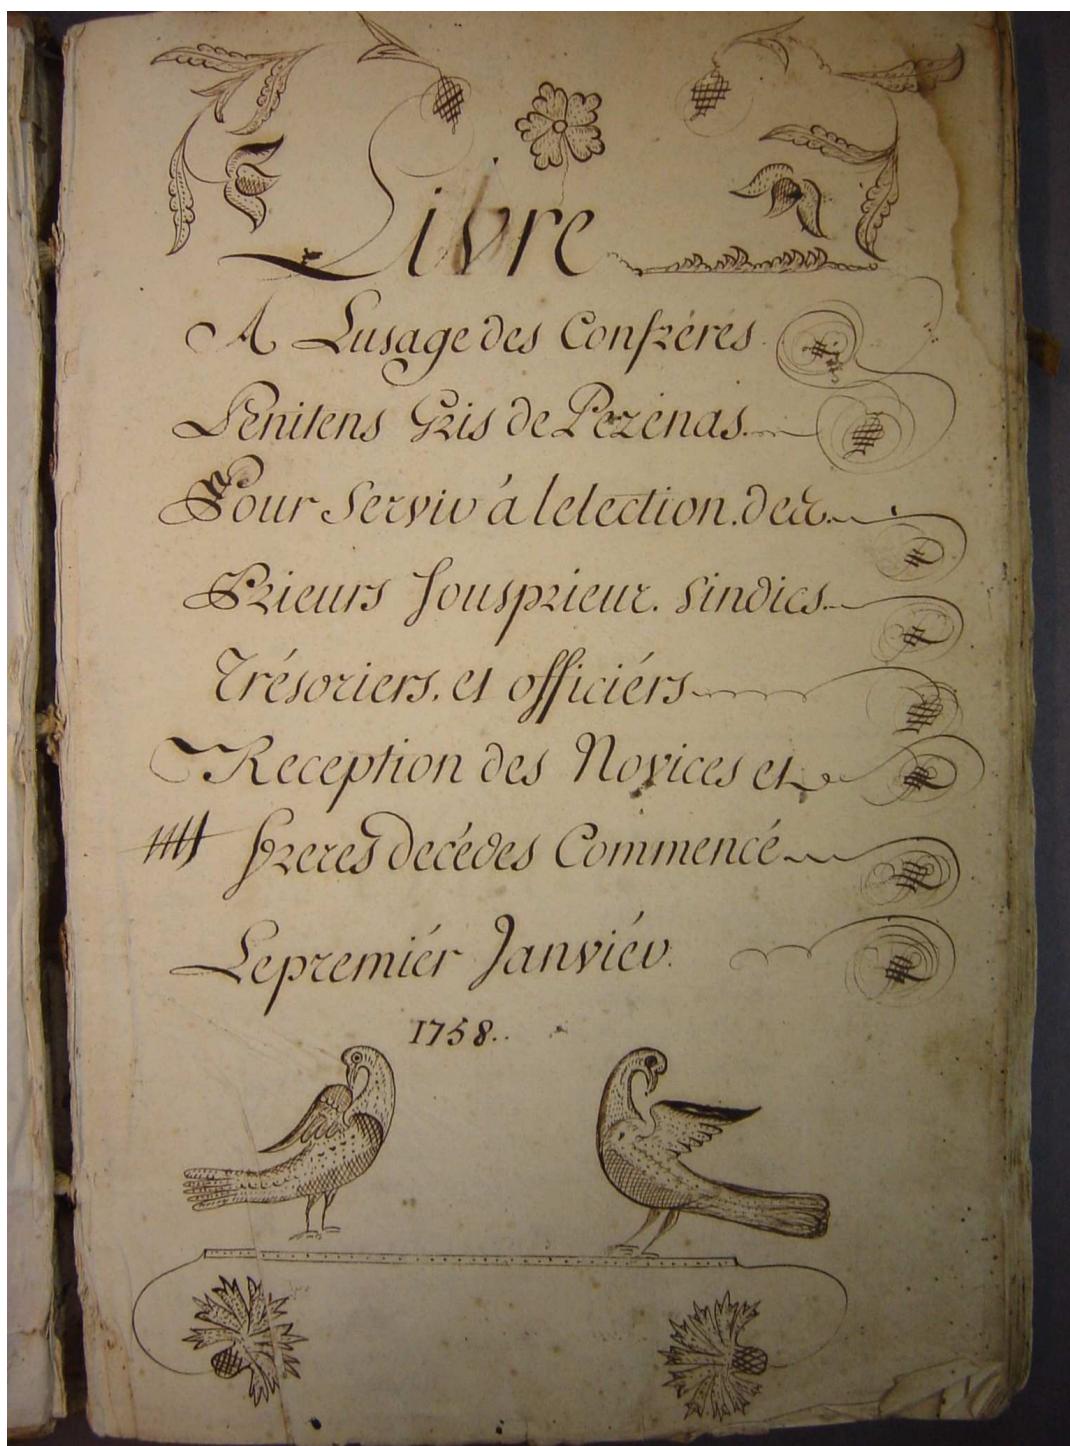 Livre
A Lusage des Confréres
Penitens Gris de Pezénas.
Pour Servir á lelection. des
Prieurs Sousprieur. Sindics.
Trésoriers. et officiérs
Reception des Novices et
freres decédes Commencé
Lepremiér Janviér.
1758..